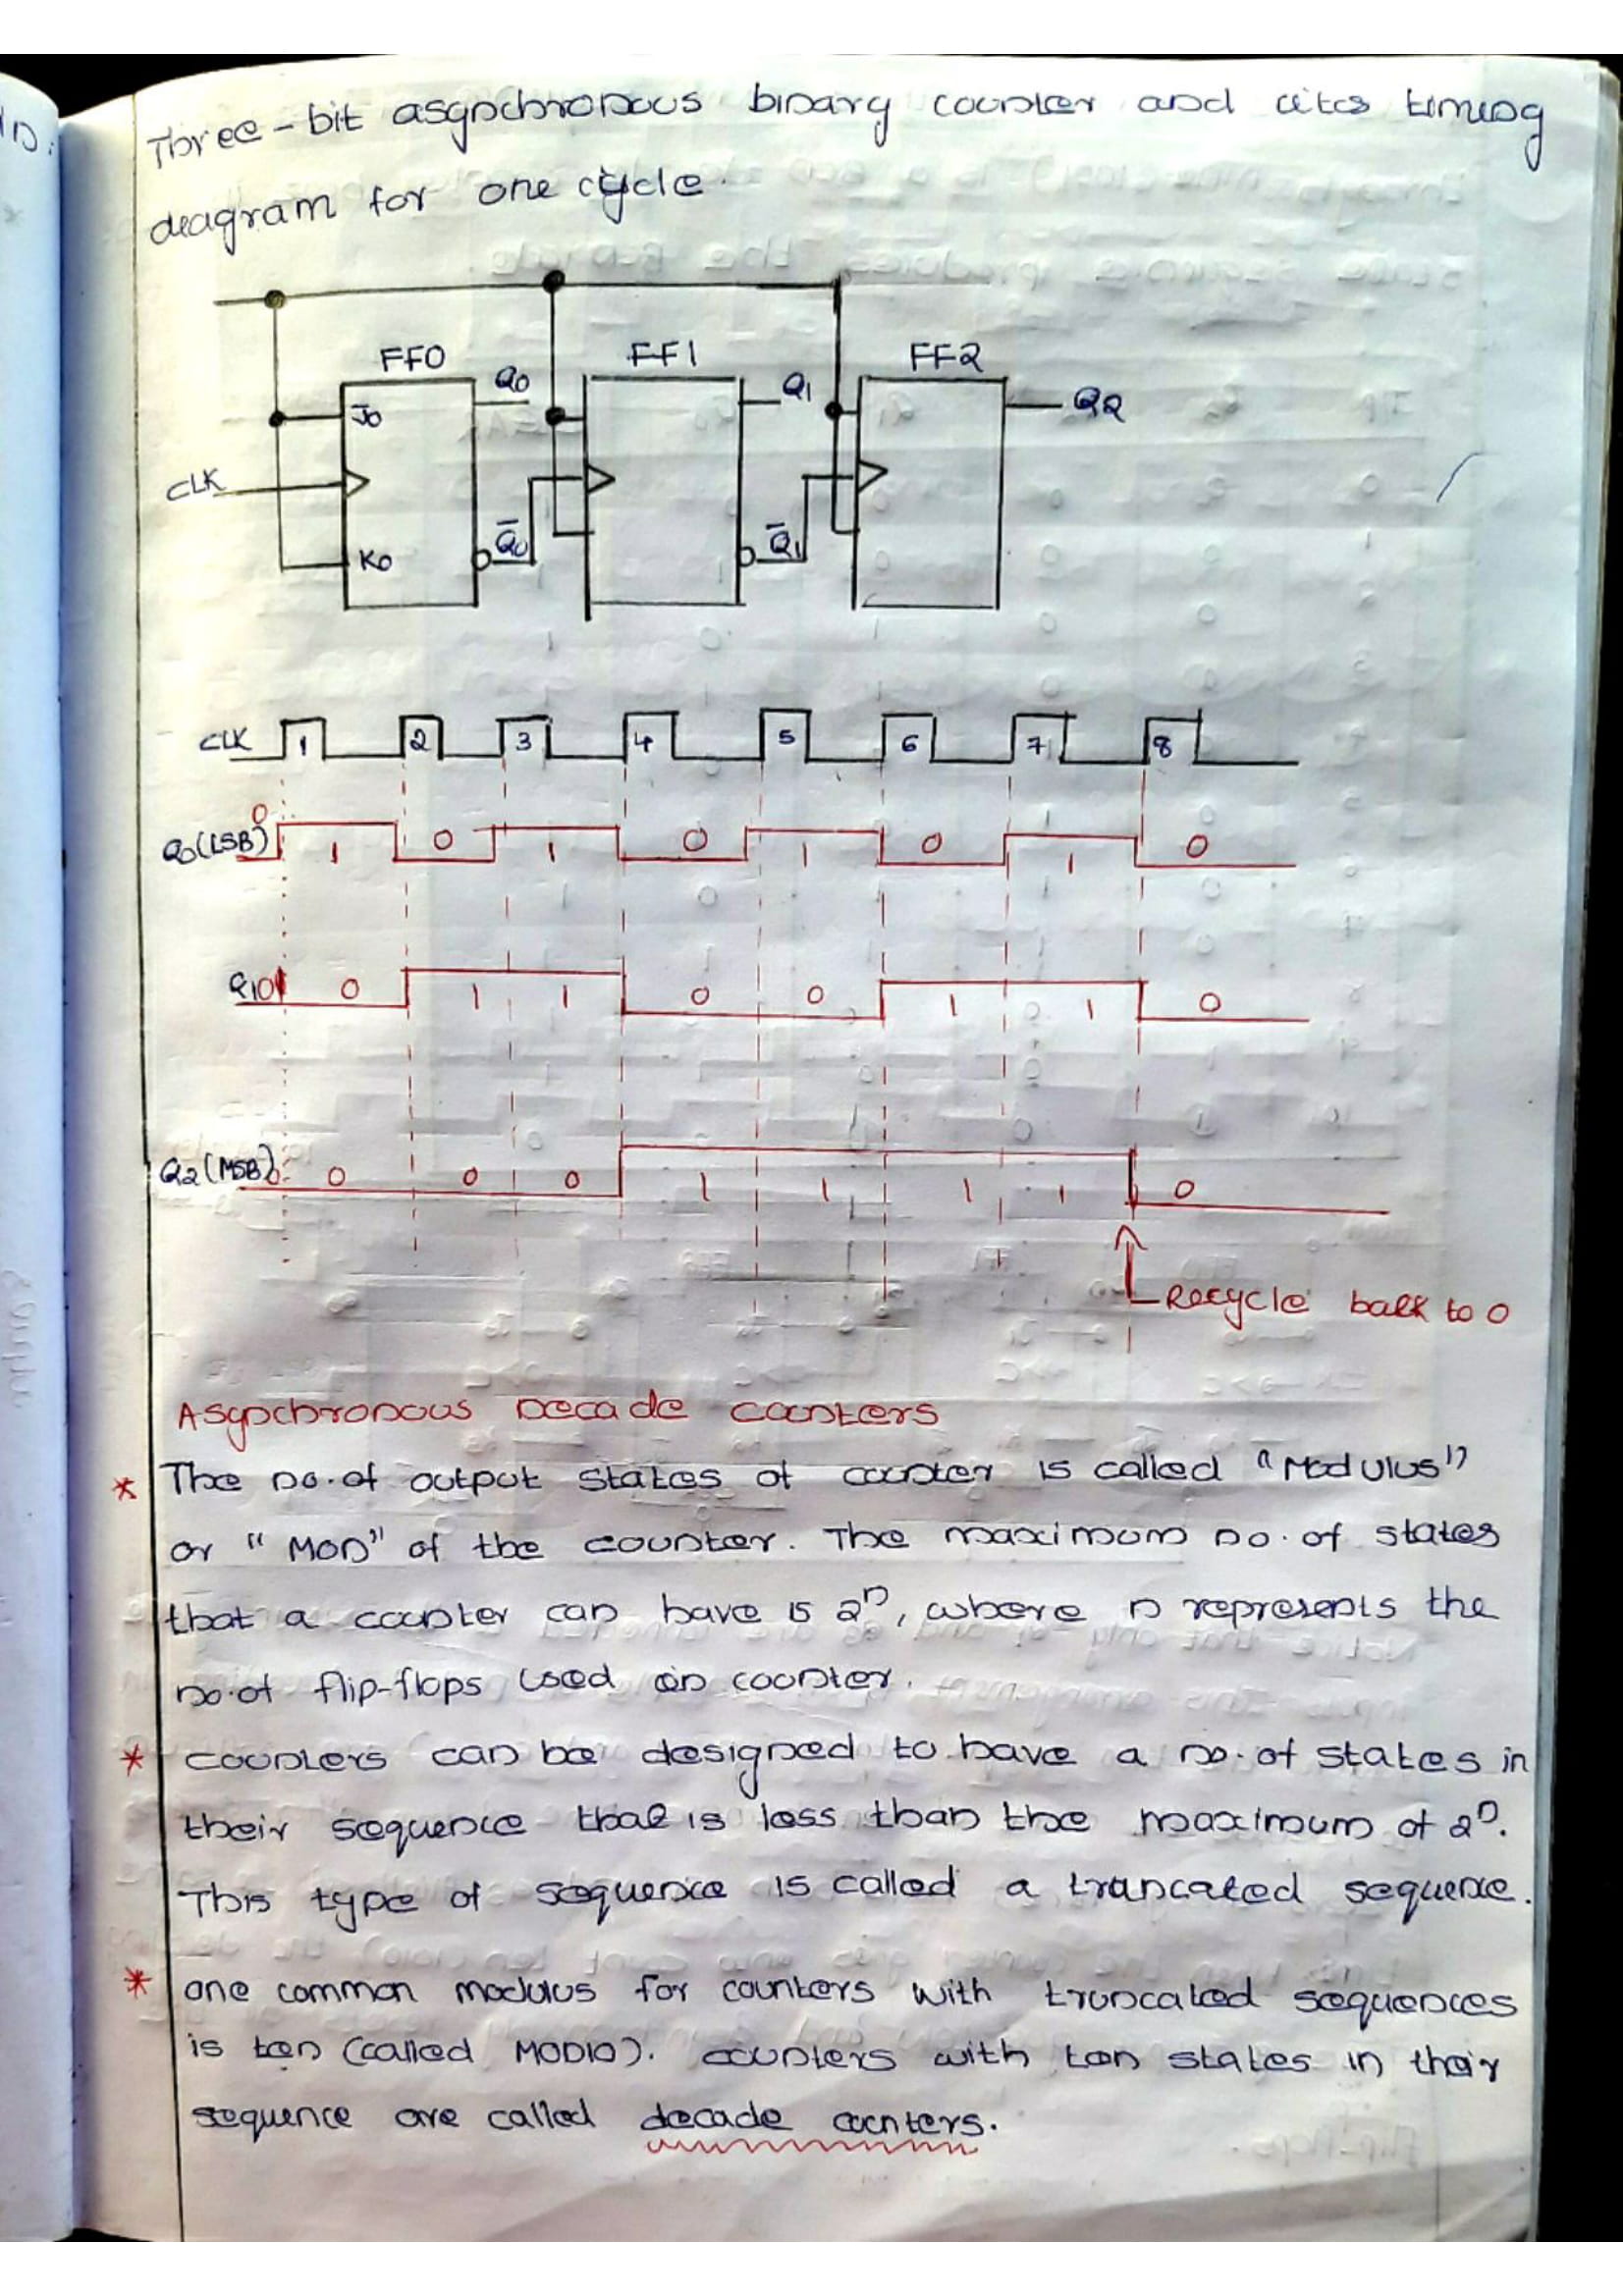 Three-bit asynchronous binary counter and its timing
diagram for one cycle.
FF0 FF1 FF2
J0 Q0 Q1 Q2
CLK
K0 Q̅0 Q̅1
CLK 1 2 3 4 5 6 7 8
Q0(LSB) 0 1 0 1 0 1 0 1 0
Q1 0 0 1 1 0 0 1 1 0
Q2(MSB) 0 0 0 0 1 1 1 1 0
Recycle back to 0
Asynchronous Decade counters
* The no.of output states of counter is called "Modulus"
or "MOD" of the counter. The maximum no. of states
that a counter can have is 2ⁿ, where n represents the
no.of flip-flops used in counter.
* counters can be designed to have a no. of states in
their sequence that is less than the maximum of 2ⁿ.
This type of sequence is called a truncated sequence.
* one common modulus for counters with truncated sequences
is ten (called MOD10). counters with ten states in their
sequence are called decade counters.